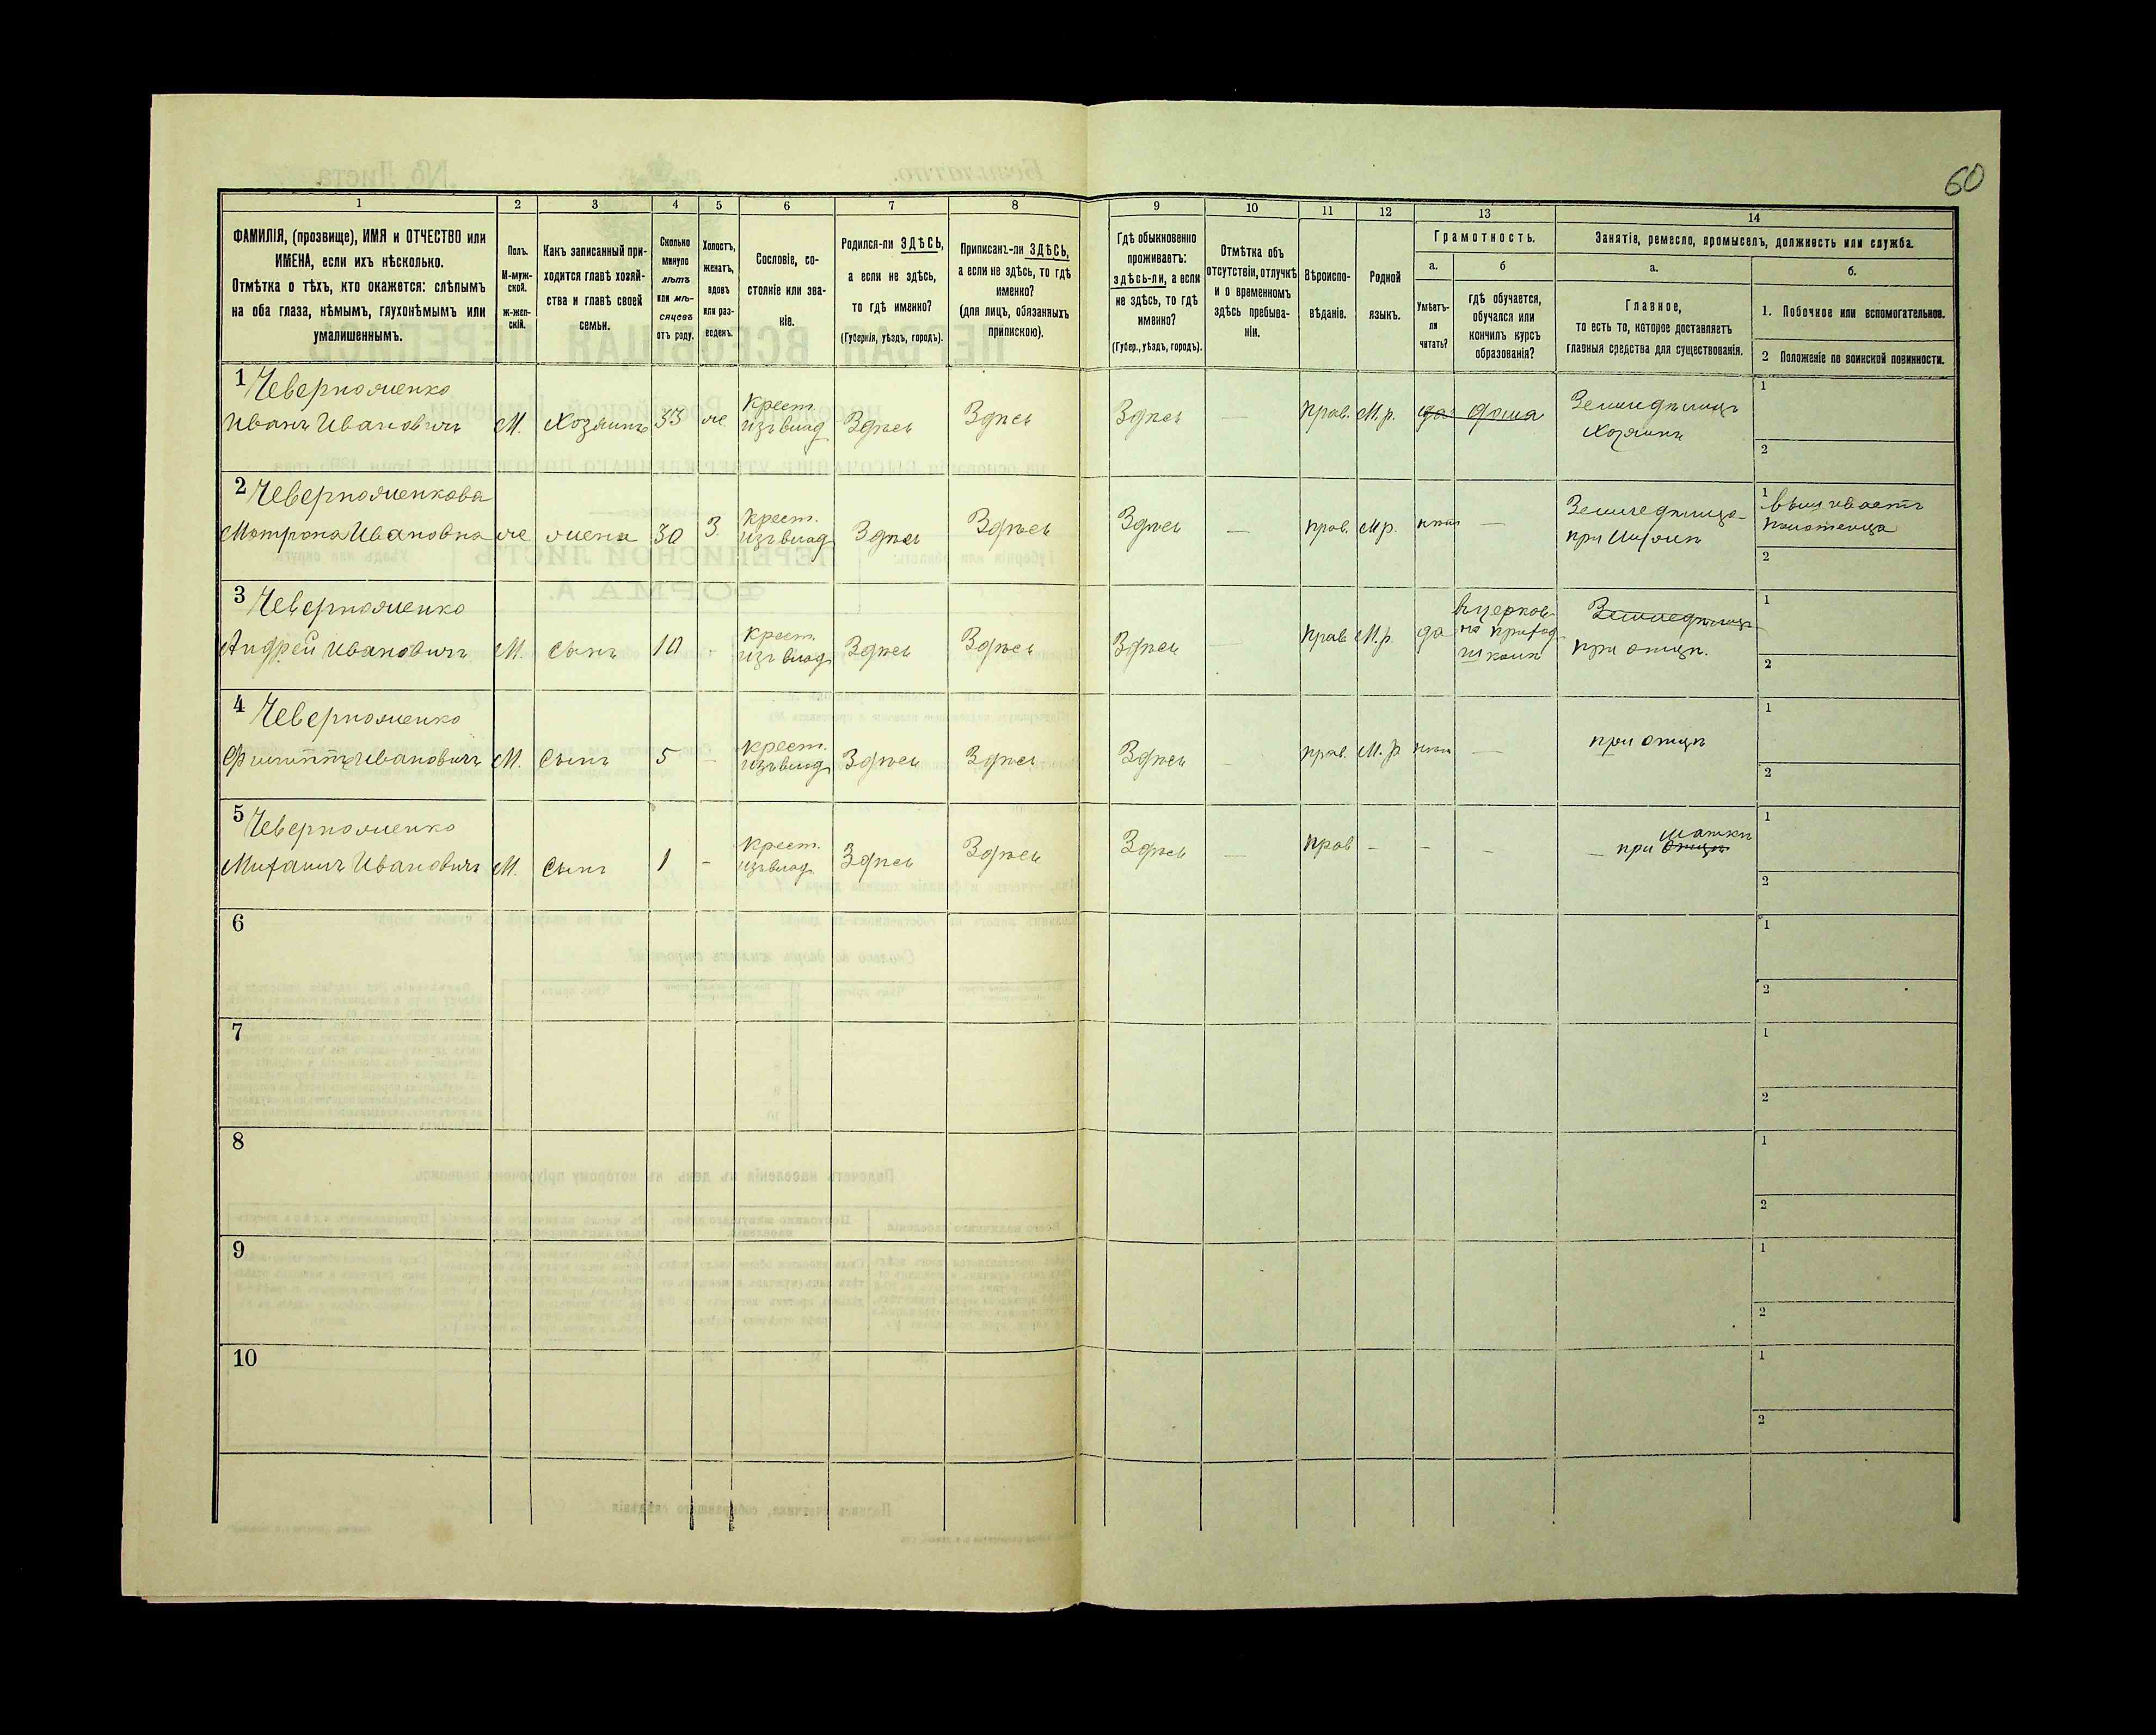 60
1
2
3
4
5
6
7
8
9
10
11
12
13
14
ФАМИЛІЯ, (прозвище), ИМЯ и ОТЧЕСТВО или
ИМЕНА, если ихъ нѣсколько.
Отмѣтка о тѣхъ, кто окажется: слѣпымъ
на оба глаза, нѣмымъ, глухонѣмымъ или
умалишеннымъ.
Полъ.
М-муж-
ской.
ж-жен-
скій.
Какъ записанный при-
ходится главѣ хозяй-
ства и главѣ своей
семьи.
Сколько
минуло
лѣтъ
или мѣ-
сяцевъ
отъ роду.
Холостъ,
женатъ,
вдовъ
или раз-
веденъ.
Сословіе, со-
стояніе или зва-
ніе.
Родился-ли ЗДѢСЬ,
а если не здѣсь,
то гдѣ именно?
(Губернія, уѣздъ, городъ).
Приписанъ-ли ЗДѢСЬ,
а если не здѣсь, то гдѣ
именно?
(для лицъ, обязанныхъ
припискою).
Гдѣ обыкновенно
проживаетъ:
здѣсь-ли, а если
не здѣсь, то гдѣ
именно?
(Губер., уѣздъ, городъ).
Отмѣтка объ
отсутствіи, отлучкѣ
и о временномъ
здѣсь пребыва-
ніи.
Вѣроиспо-
вѣданіе.
Родной
языкъ.
Грамотность.
а.
Умѣетъ-
ли
читать?
б
гдѣ обучается,
обучался или
кончилъ курсъ
образованія?
Занятіе, ремесло, промыселъ, должность или служба.
а.
Главное,
то есть то, которое доставляетъ
главныя средства для существованія.
б.
1. Побочное или вспомогательное.
2 Положеніе по воинской повинности.
1 Чевернoженко
Иванъ Ивановичъ М. Хозяинъ 33 же Крест. изъ влад Здѣсь Здѣсь Здѣсь — прав. М.р. да дома Земледѣлецъ
Хозяинъ
1
2
2 Чевернoженкова
Матрона Ивановна же жена 30 З. Крест. изъ влад Здѣсь Здѣсь Здѣсь — прав. М.р. нѣтъ — Земледѣлица
при
1 вышиваетъ
полотенца
2
3 Чевернoженко
Андрей Ивановичъ М. Сынъ 10 - Крест. изъ влад Здѣсь Здѣсь Здѣсь прав М.р. да въ церков-
но приход
школѣ
Земледѣлецъ
при отцѣ.
1
2
4 Чевернoженко
Филиппъ Ивановичъ М. Сынъ 5 - Крест. изъ влад Здѣсь Здѣсь Здѣсь прав. М.р нѣтъ — при отцѣ
1
2
5 Чевернoженко
Михаилъ Ивановичъ М. Сынъ 1 - Крест. изъ влад Здѣсь Здѣсь Здѣсь — прав - - - — при отцѣ маткѣ
1
2
6
1
2
7
1
2
8
1
2
9
1
2
10
1
2